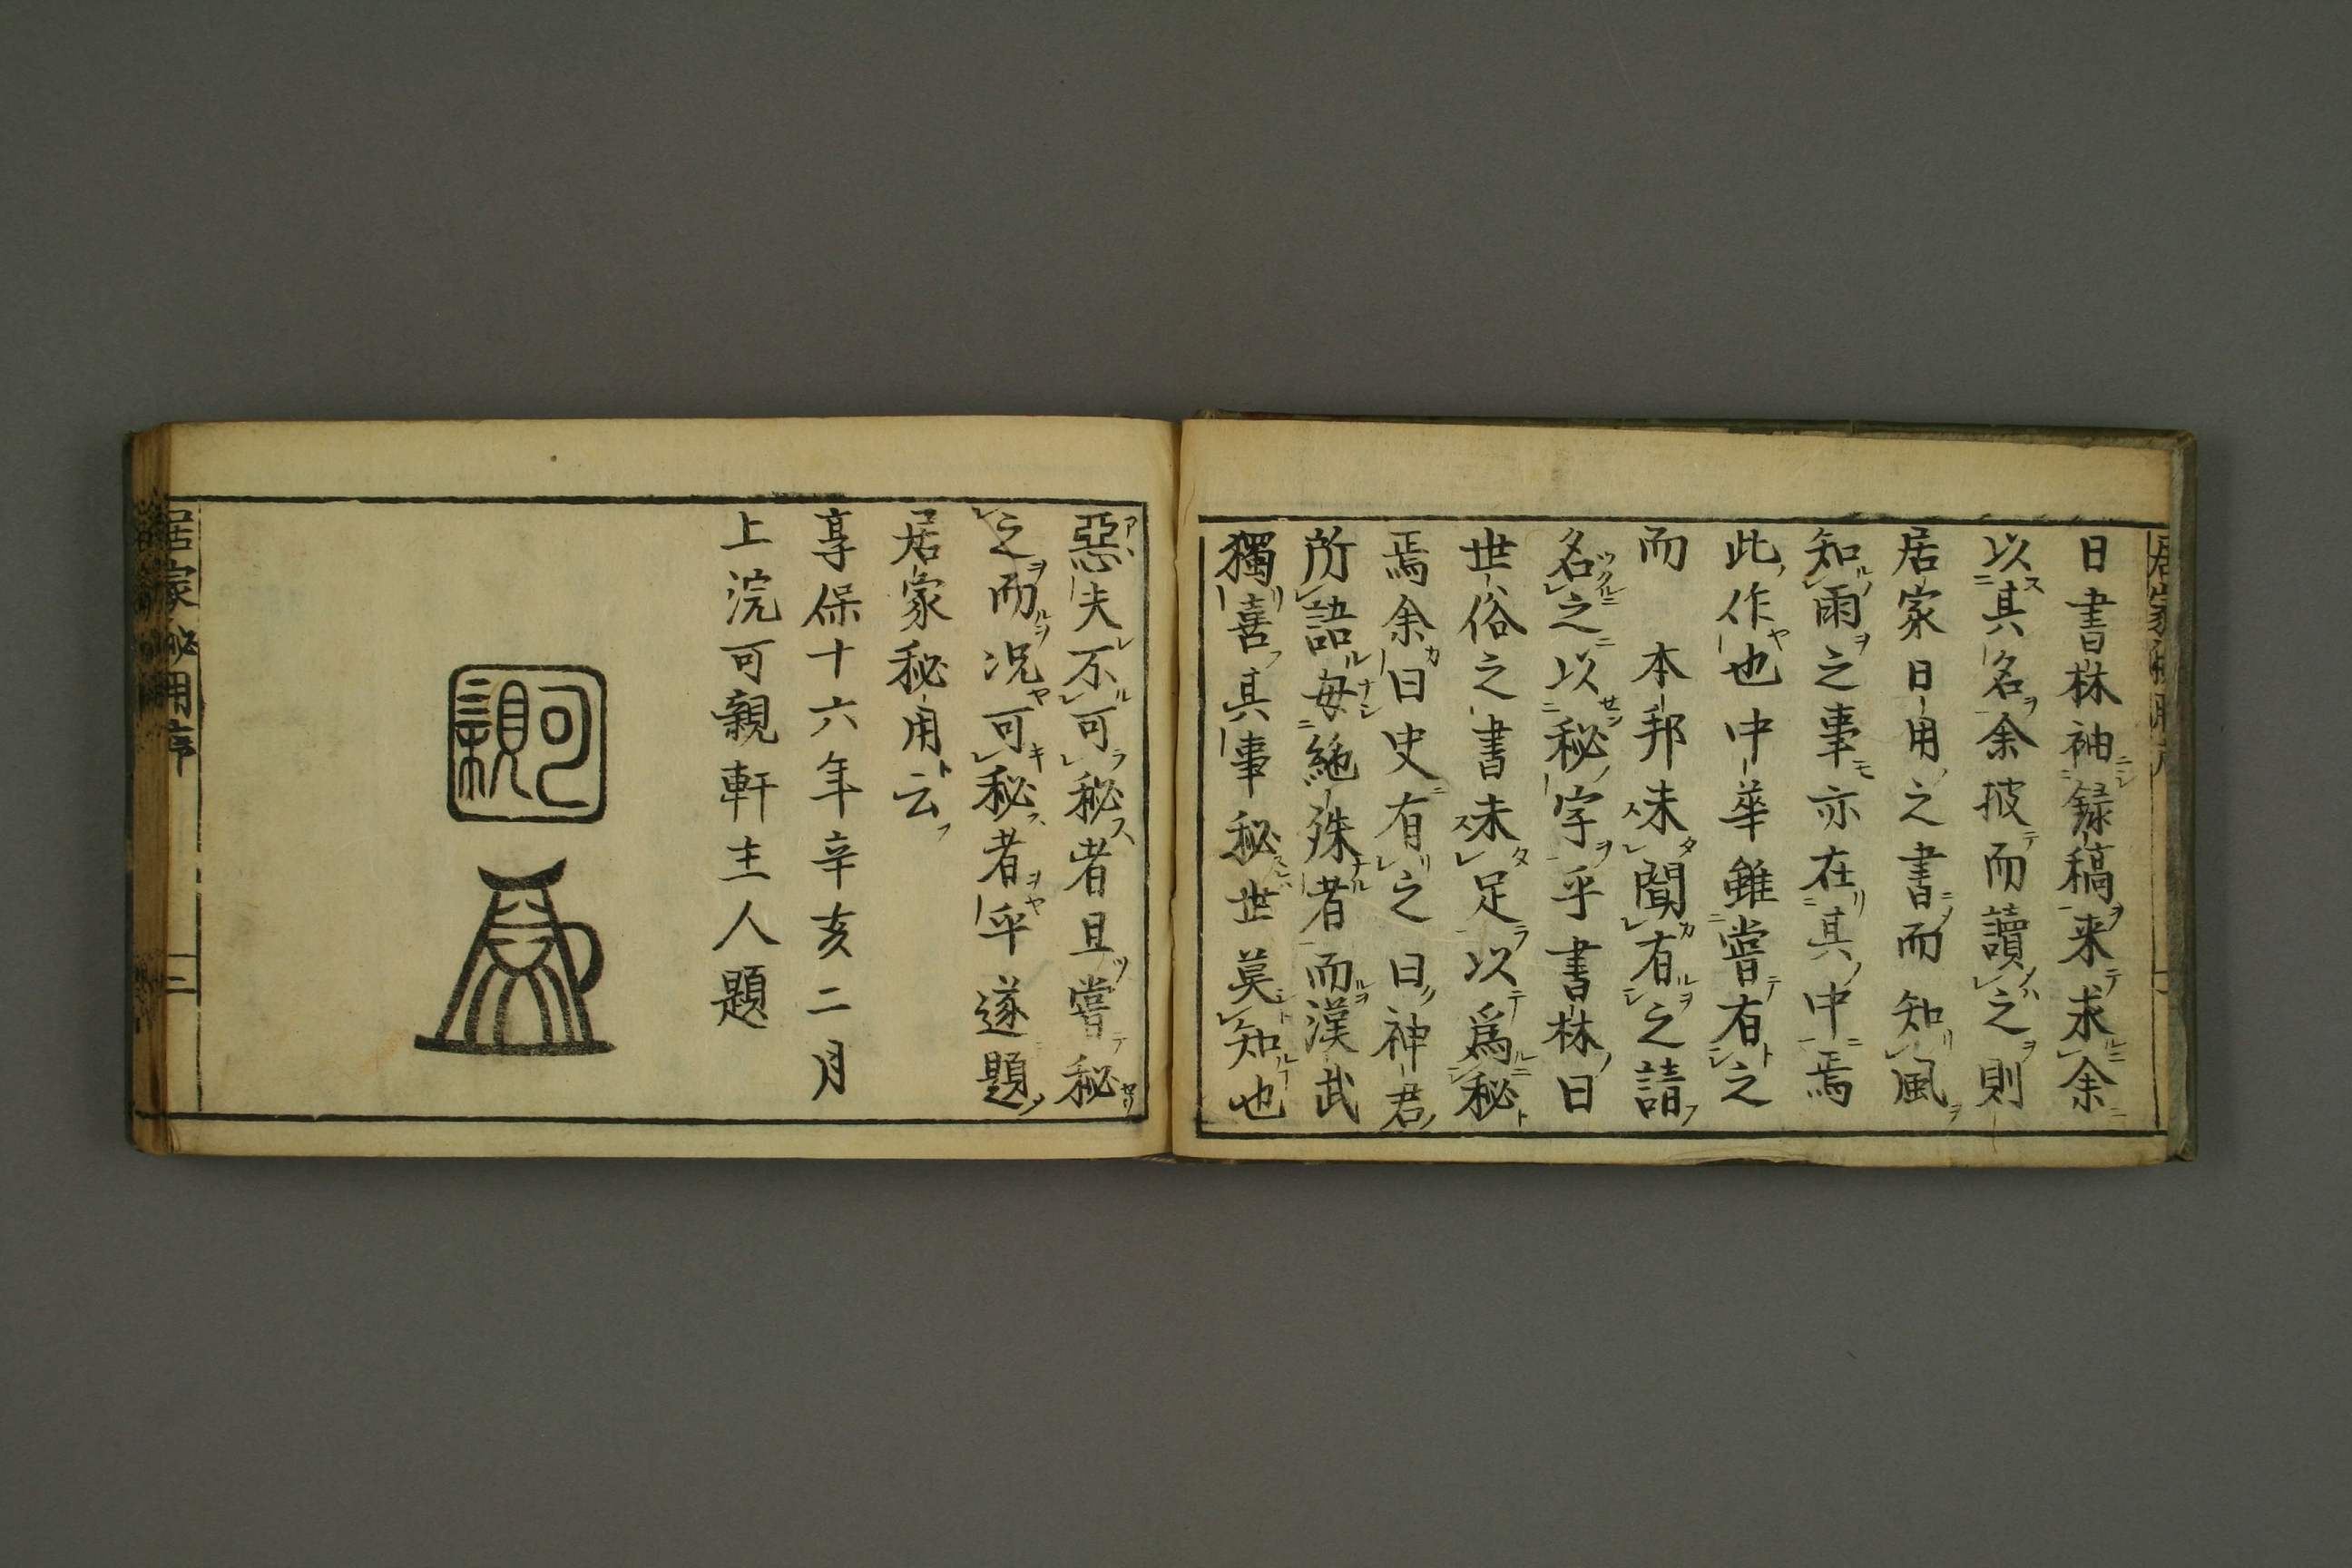 日書林袖録稿来求余
以其名余披而讀之則
居家日用之書而知風
知雨之事亦在其中焉
此作也中華雖嘗有之
而　本邦未聞有之請
名之以秘字乎書林曰
世俗之書未足以爲秘
焉余曰史有之曰神君
所語毋絶殊者而漢武
獨喜其事秘世莫知也
惡夫不可秘者且嘗秘
之而況可秘者乎遂題
居家秘用云
享保十六年辛亥二月
上浣可親軒主人題
可親
居家秘用序
二